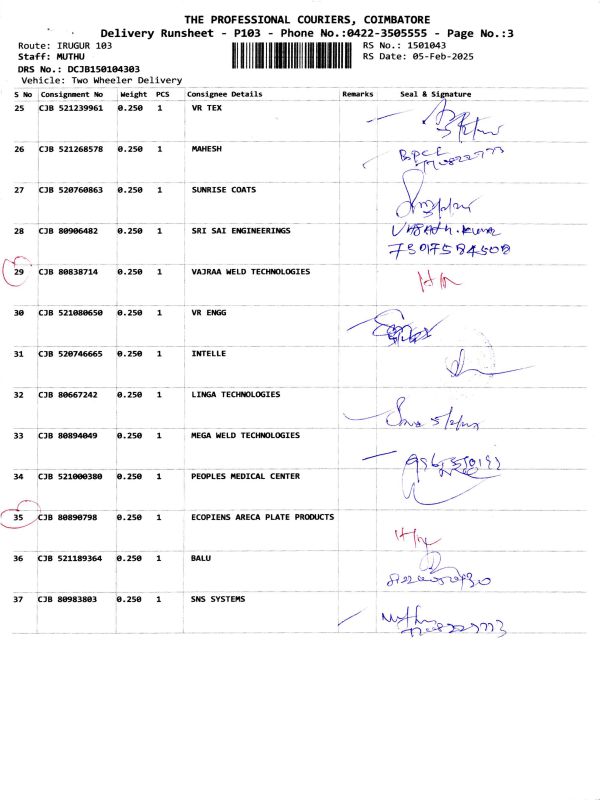 THE PROFESSIONAL COURIERS, COIMBATORE
Delivery Runsheet - P103 - Phone No.:0422-3505555 - Page No.:3
Route: IRUGUR 103 RS No.: 1501043
Staff: MUTHU RS Date: 05-Feb-2025
DRS No.: DCJB150104303
Vehicle: Two Wheeler Delivery
S No Consignment No Weight PCS Consignee Details Remarks Seal & Signature
25 CJB 521239961 0.250 1 VR TEX
26 CJB 521268578 0.250 1 MAHESH BPCL
27 CJB 520760863 0.250 1 SUNRISE COATS
28 CJB 80906482 0.250 1 SRI SAI ENGINEERINGS
75017584508
29 CJB 80838714 0.250 1 VAJRAA WELD TECHNOLOGIES
30 CJB 521080650 0.250 1 VR ENGG
31 CJB 520746665 0.250 1 INTELLE
32 CJB 80667242 0.250 1 LINGA TECHNOLOGIES
33 CJB 80894049 0.250 1 MEGA WELD TECHNOLOGIES
34 CJB 521000380 0.250 1 PEOPLES MEDICAL CENTER
35 CJB 80890798 0.250 1 ECOPIENS ARECA PLATE PRODUCTS
36 CJB 521189364 0.250 1 BALU
37 CJB 80983803 0.250 1 SNS SYSTEMS